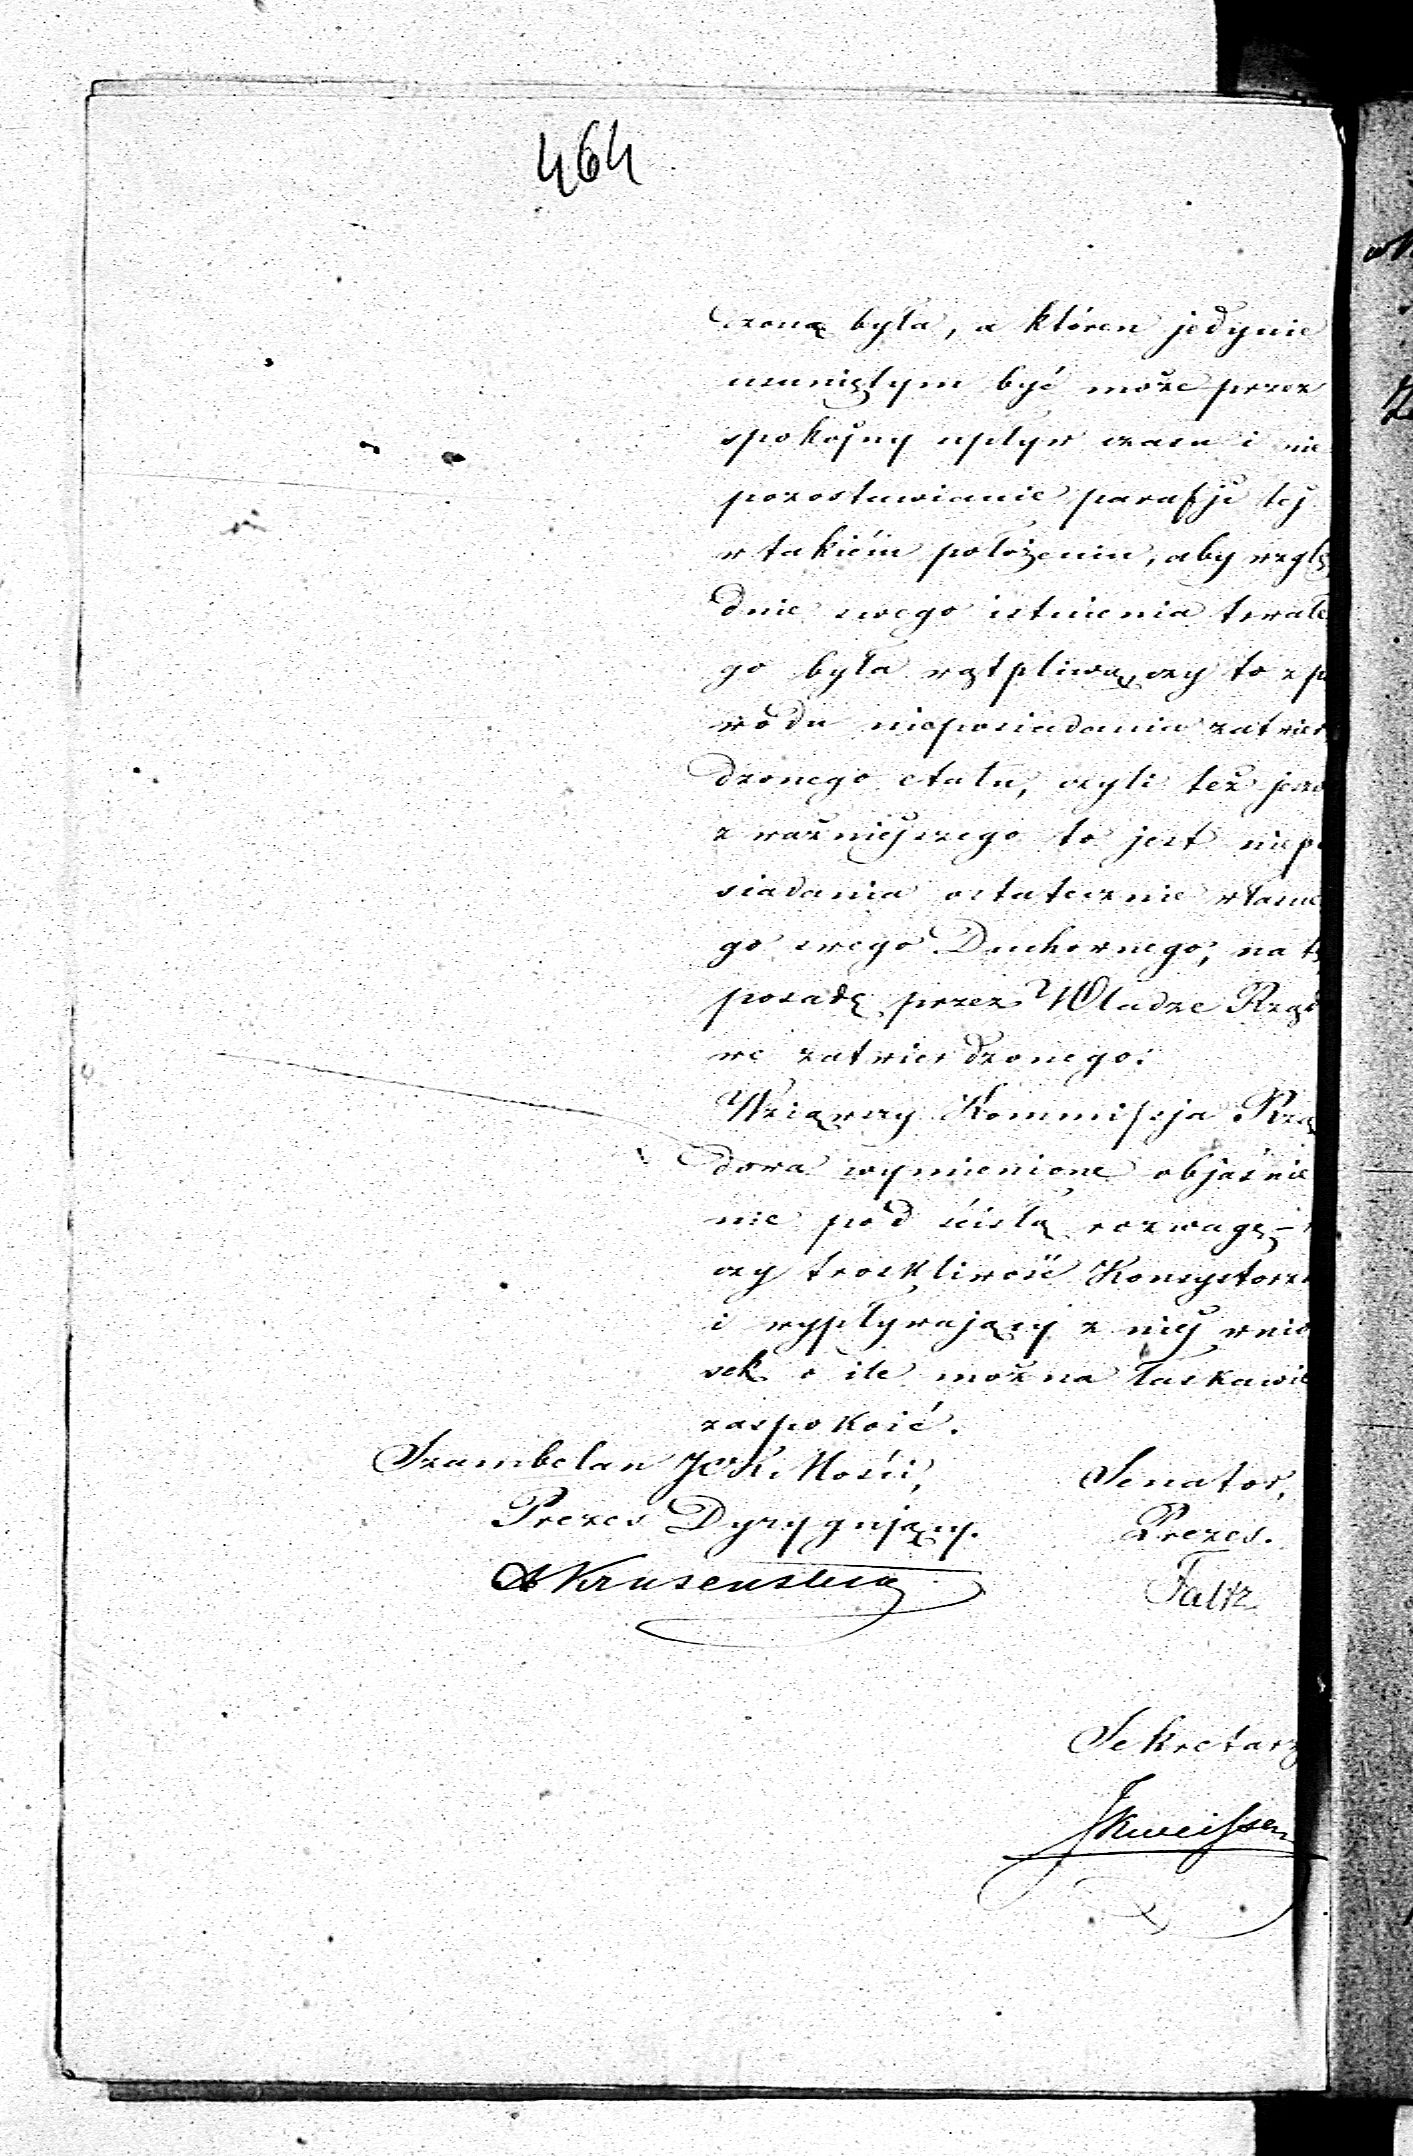 464
czoną była, a któren jedynie
usuniętym być może przez
spokojny upływ czasu i nie
pozostawianie parafji téj
w takiém położeniu, aby wzglę
dnie swego istnienia trwałe
go była wątpliwą, czy to z po
wodu nieposiadania zatwier
dzonego etatu, czyli też jeszcze
z ważniejszego to jest niepo
siadania ostatecznie własne
go swego Duchownego, na tę
posadę przez Władze Rządo
we zatwierdzonego.
Wziąwszy Kommissja Rzą
dowa wymienione objaśnie
nie pod ścisłą rozwagę
czy troskliwość Konsystorza
i wypływający z niéj wnio
sek o ile można łaskawie
zaspokoić.
Szambelan JCK. Mości,
Prezes Dyrygujący.
Senator,
Prezes.
Faltz
Sekretarz